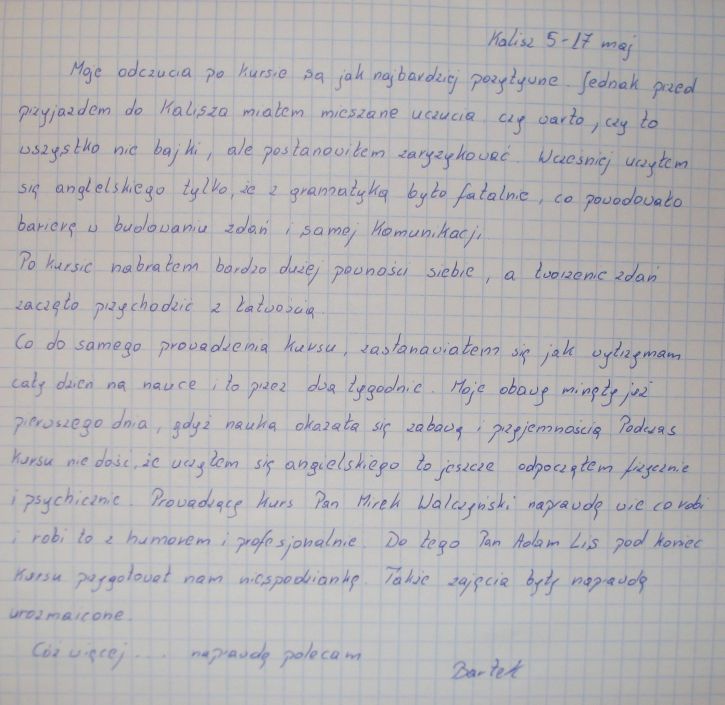 Kalisz 5-17 maj
Moje odczucia po kursie są jak najbardziej pozytywne. Jednak przed
przyjazdem do Kalisza miałem mieszane uczucia czy warto, czy to
wszystko nie bajki, ale postanowiłem zaryzykować. Wcześniej uczyłem
się angielskiego tylko, że z gramatyką było fatalnie, co powodowało
barierę w budowaniu zdań i samej komunikacji.
Po kursie nabrałem bardzo dużej pewności siebie, a tworzenie zdań
zaczęło przychodzić z łatwością.
Co do samego prowadzenia kursu, zastanawiałem się jak wytrzymam
cały dzień na nauce i to przez dwa tygodnie. Moje obawy minęły już
pierwszego dnia, gdyż nauka okazała się zabawą i przyjemnością Podczas
kursu nie dość, że uczyłem się angielskiego to jeszcze odpocząłem fizycznie
i psychicznie. Prowadzący kurs Pan Mirek Walczyński naprawdę wie co robi
i robi to z humorem i profesjonalnie. Do tego Pan Adam Lis pod koniec
kursu przygotował nam niespodziankę. Także zajęcia były naprawdę
urozmaicone.
Cóż więcej .... naprawdę polecam
Bartek